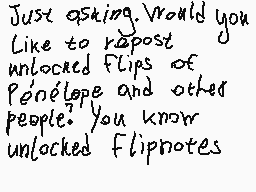 Just asking. Would you
like to repost
unlocked flips of
Pénélope and other
people? You know
unlocked flipnotes